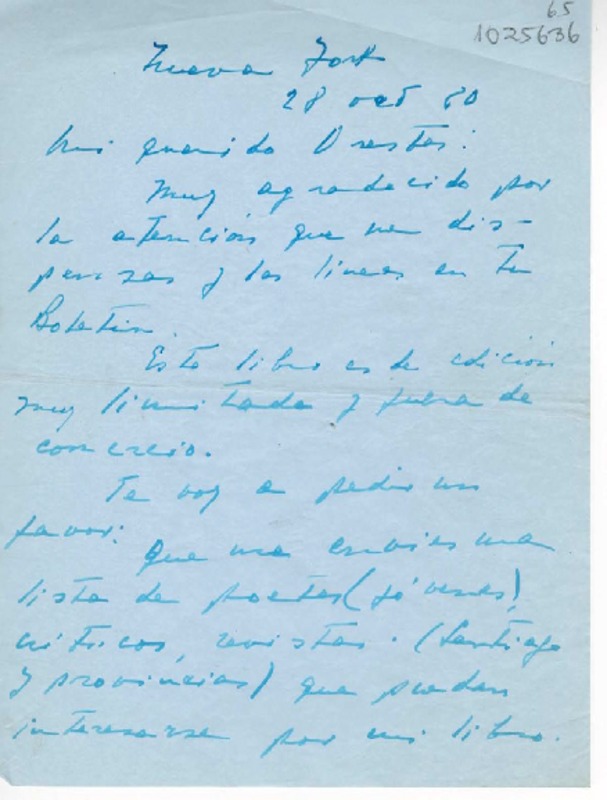 65
1025636
Nueva York
28 oct 80
Mi querido Orestes:
Muy agradecido por
la atención que me dis-
pensas y las lineas en tu
Boletin.
Este libro es de edición
muy limitada y fuera de
comercio.
Te voy a pedir un
favor:
que me envies una
lista de poetas (jóvenes),
criticos, revistas. (Santiago
y provincias) que puedan
interesarse por mi libro.